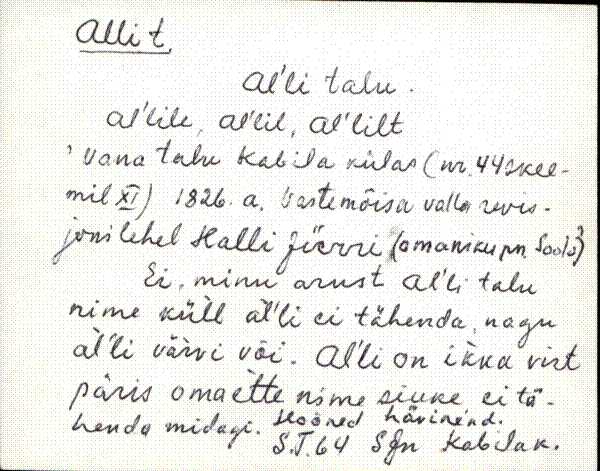 Alli t.
Al'li talu.
Al'lile, Al'lil, Al'lilt
Vana talu Kabila külas (nr. 44 skee-
mil XI) 1826. a. Vastemõisa valla revis-
jonilehel Halli Jürri (omaniku pn. Soola?)
Ei, minu arust Al'li talu
nime küll al'li ei tähenda, nagu
al'li värvi või. Al'li on ikka vist
päris omaette nime siuke ei tä-
henda midagi. Hooned hävinend.
S.T. 64 Sjn Kabila k.